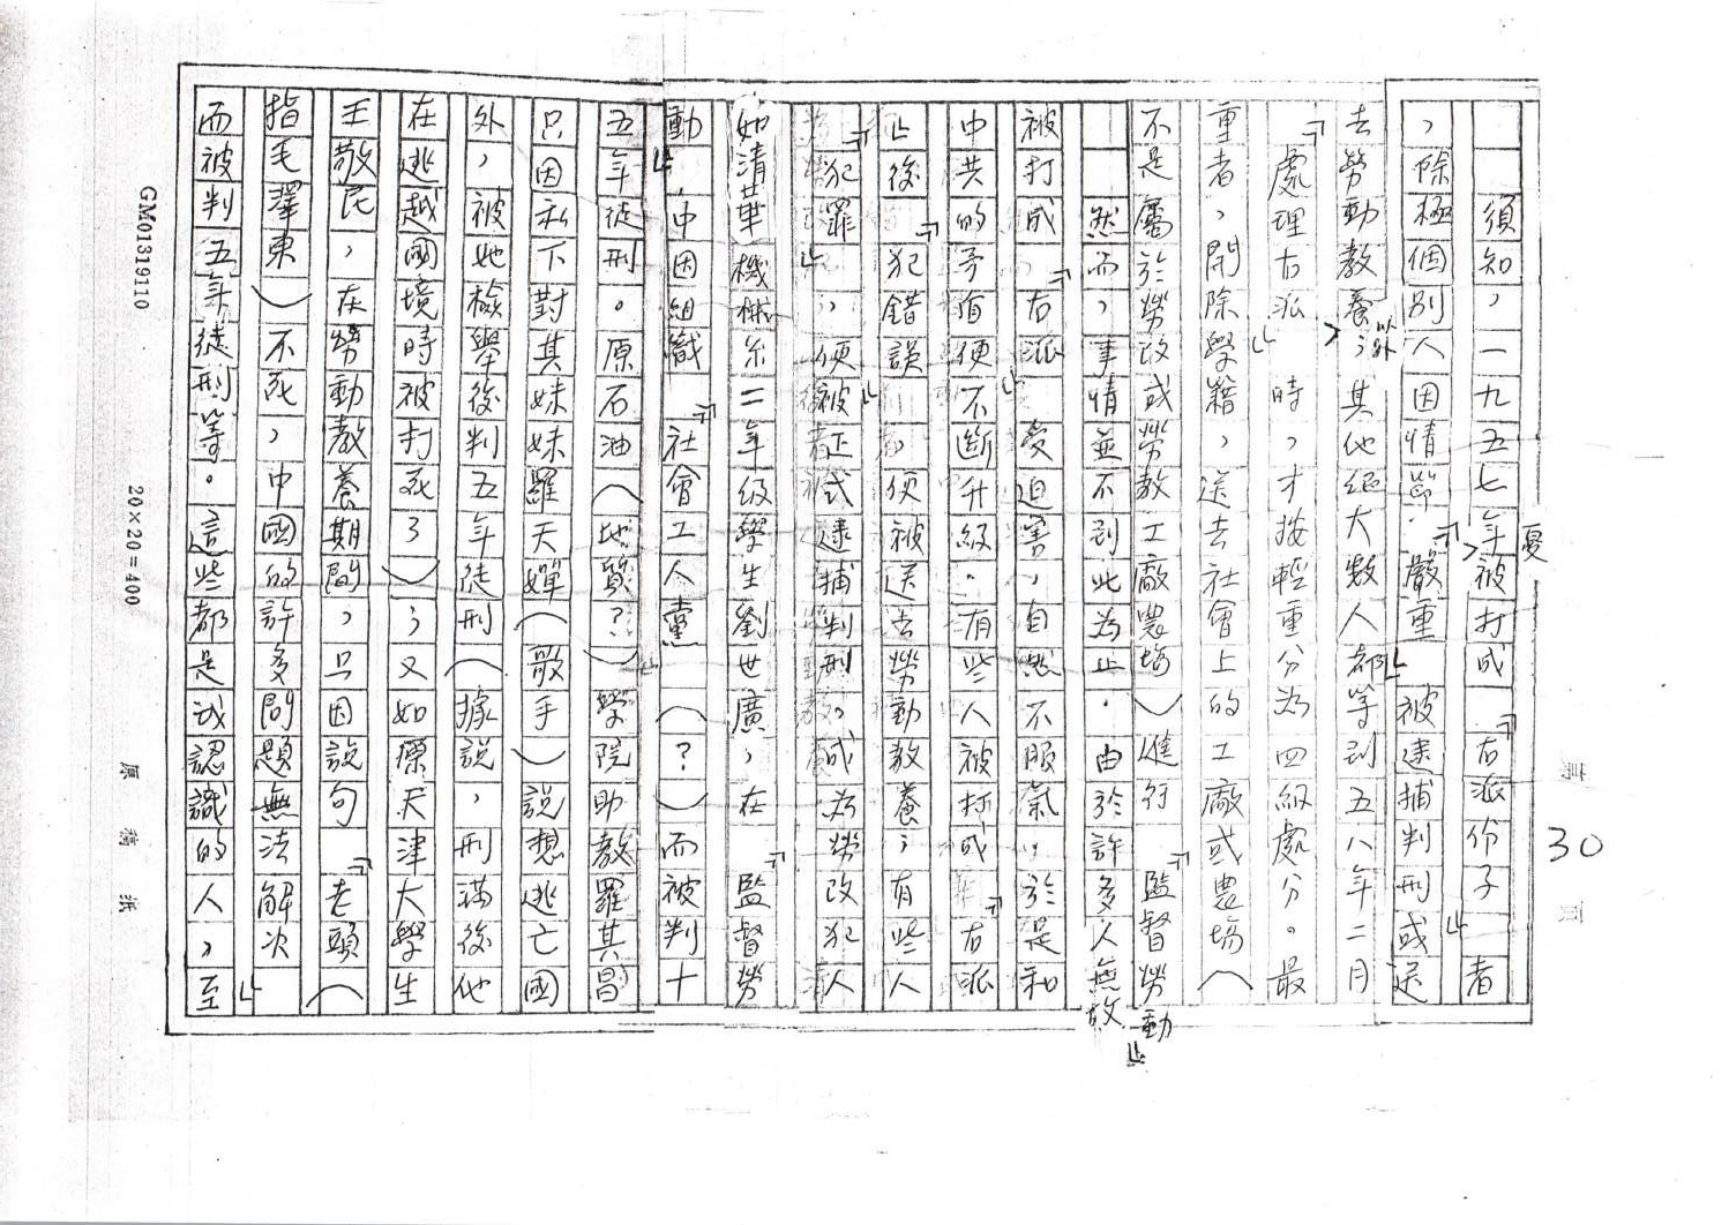 須知，一九五七年夏被打成『右派份子』者
，除極個別人因情節『嚴重』被逮捕判刑或送
去勞動教養以外，其他絕大數人都等到五八年二月
『處理右派』時，才按輕重分為四級處分。最
重者，開除學籍，送去社會上的工廠或農場（
不是屬於勞改或勞教工廠農場）進行『監督勞動』
然而，事情並不到此為止．由於許多人無故
被打成『右派』受迫害，自然不服氣，於是和
中共的矛盾便不斷升級．有些人被打成『右派
』後『犯錯誤』便被送去勞動教養；有些人
『犯罪』，便被正式逮捕判刑，成為勞改犯人
如清華機械系二年級學生劉世廣，在『監督勞
動』中因組織『社會工人黨』（？）而被判十
五年徒刑。原石油（地質？）學院助教羅其昌
只因私下對其妹妹羅天嬋（歌手）說想逃亡國
外，被她檢舉後判五年徒刑（據說，刑滿後他
在逃越國境時被打死了）；又如原天津大學生
王敬民，在勞動教養期間，只因說句『老頭（
指毛澤東）不死，中國的許多問題無法解決』
而被判五年徒刑等。這些都是我認識的人，至
30
頁
GM01319110
20×20=400
原稿紙